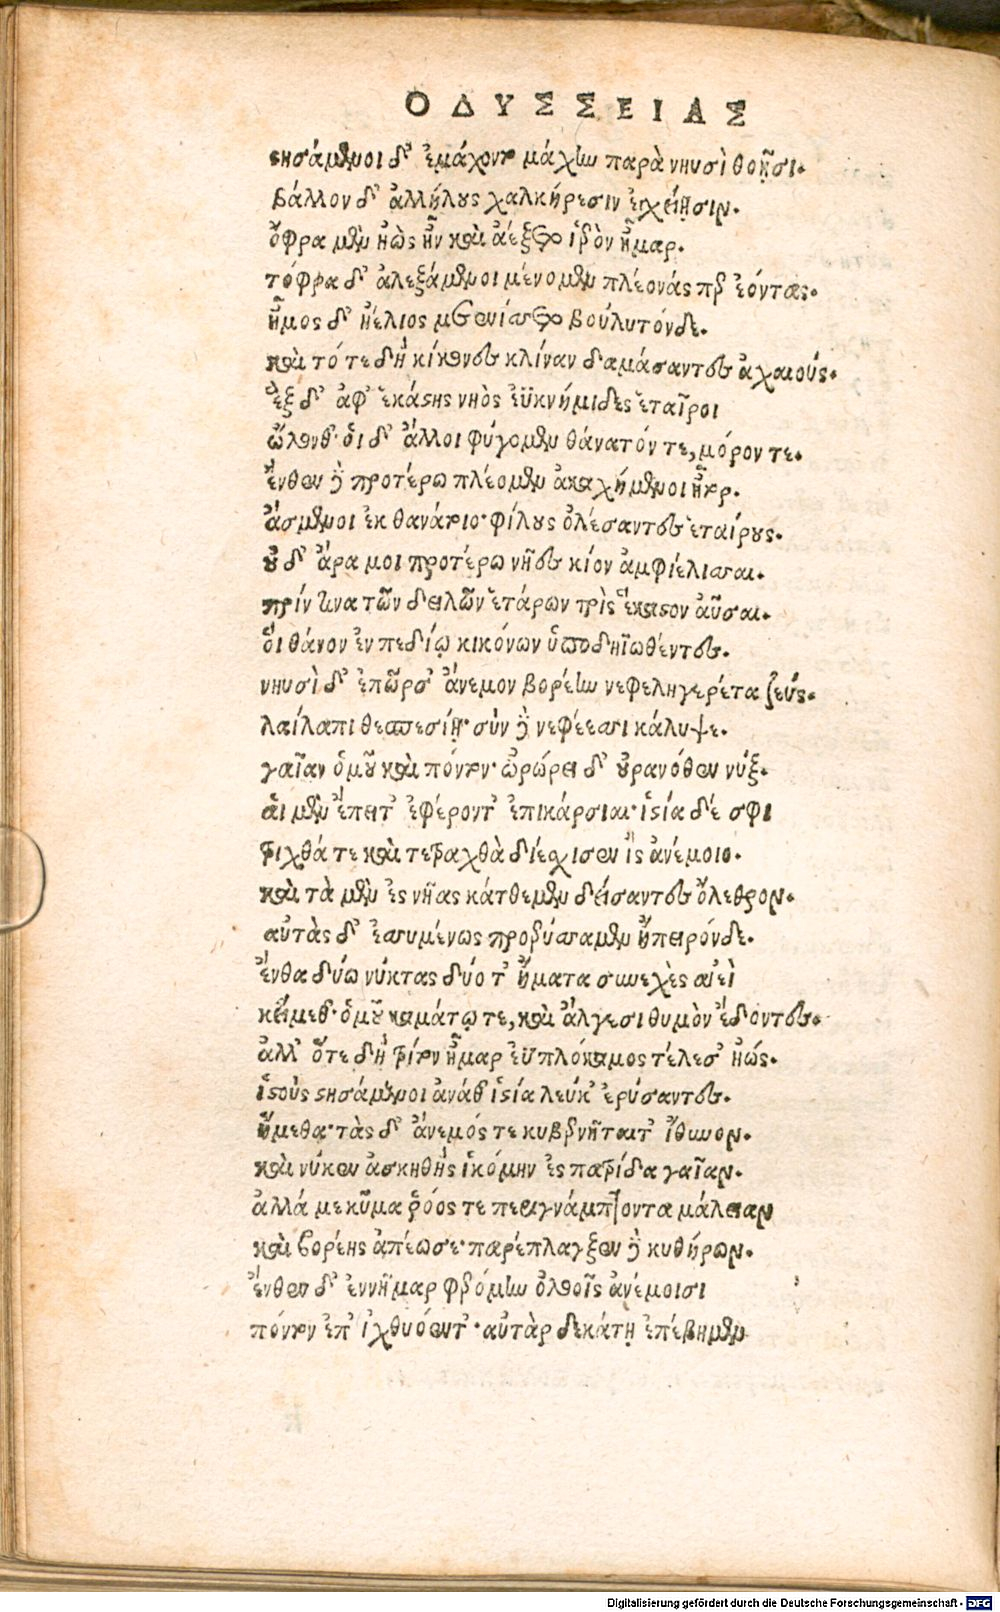 ΟΔΥΣΣΕΙΑΣ
στησάμενοι δ' ἐμάχοντο μάχην παρὰ νηυσὶ θοῇσι.
βάλλον δ' ἀλλήλους χαλκήρεσιν ἐγχείῃσιν.
ὄφρα μὲν ἠὼς ἦν καὶ ἀέξετο ἱερὸν ἦμαρ.
τόφρα δ' ἀλεξάμενοι μένομεν πλέονάς περ ἐόντας.
ἦμος δ' ἠέλιος μετενίσσετο βούλυτόνδε.
καὶ τότε δὴ κίκονες κλίναν δαμάσαντες ἀχαιούς.
ἓξ δ' ἀφ' ἑκάστης νηὸς ἐϋκνήμιδες ἑταῖροι
ὤλονθ'· οἱ δ' ἄλλοι φύγομεν θάνατόν τε, μόρον τε.
ἔνθεν δὲ προτέρω πλέομεν ἀκαχήμενοι ἦτορ.
ἄσμενοι ἐκ θανάτοιο· φίλους ὀλέσαντες ἑταίρους.
οὐδ' ἄρα μοι προτέρω νῆες κίον ἀμφιέλισσαι.
πρίν τινα τῶν δειλῶν ἑτάρων τρὶς ἕκαστον ἀῦσαι.
οἳ θάνον ἐν πεδίῳ κικόνων ὕπο δηϊωθέντες.
νηυσὶ δ' ἐπῶρσ' ἄνεμον βορέην νεφεληγερέτα ζεύς.
λαίλαπι θεσπεσίῃ· σὺν δὲ νεφέεσσι κάλυψε.
γαῖαν ὁμοῦ καὶ πόντον· ὠρώρει δ' οὐρανόθεν νύξ.
αἱ μὲν ἔπειτ' ἐφέροντ' ἐπικάρσιαι· ἱστία δέ σφι
τριχθά τε καὶ τετραχθὰ διέσχισεν ἲς ἀνέμοιο.
καὶ τὰ μὲν ἐς νῆας κάτθεμεν δείσαντες ὄλεθρον.
αὐτὰς δ' ἐσσυμένως προερύσσαμεν ἤπειρόνδε.
ἔνθα δύω νύκτας δύο τ' ἤματα συνεχὲς αἰεὶ
κείμεθ'· ὁμοῦ καμάτῳ τε, καὶ ἄλγεσι θυμὸν ἔδοντες.
ἀλλ' ὅτε δὴ τρίτον ἦμαρ ἐϋπλόκαμος τέλεσ' ἠώς.
ἱστοὺς στησάμενοι ἀνάθ' ἱστία λεύκ' ἐρύσαντες.
ἥμεθα· τὰς δ' ἄνεμός τε κυβερνῆται τ' ἴθυνον.
καὶ νύ κεν ἀσκηθὴς ἱκόμην ἐς πατρίδα γαῖαν.
ἀλλά με κῦμα ῥόος τε περιγνάμπτοντα μάλειαν
καὶ βορέης ἀπέωσε· παρέπλαγξεν δὲ κυθήρων.
ἔνθεν δ' ἐννῆμαρ φερόμην ὀλοοῖς ἀνέμοισι
πόντον ἐπ' ἰχθυόεντ'· αὐτὰρ δεκάτῃ ἐπέβημεν
Digitalisierung gefördert durch die Deutsche Forschungsgemeinschaft - DFG